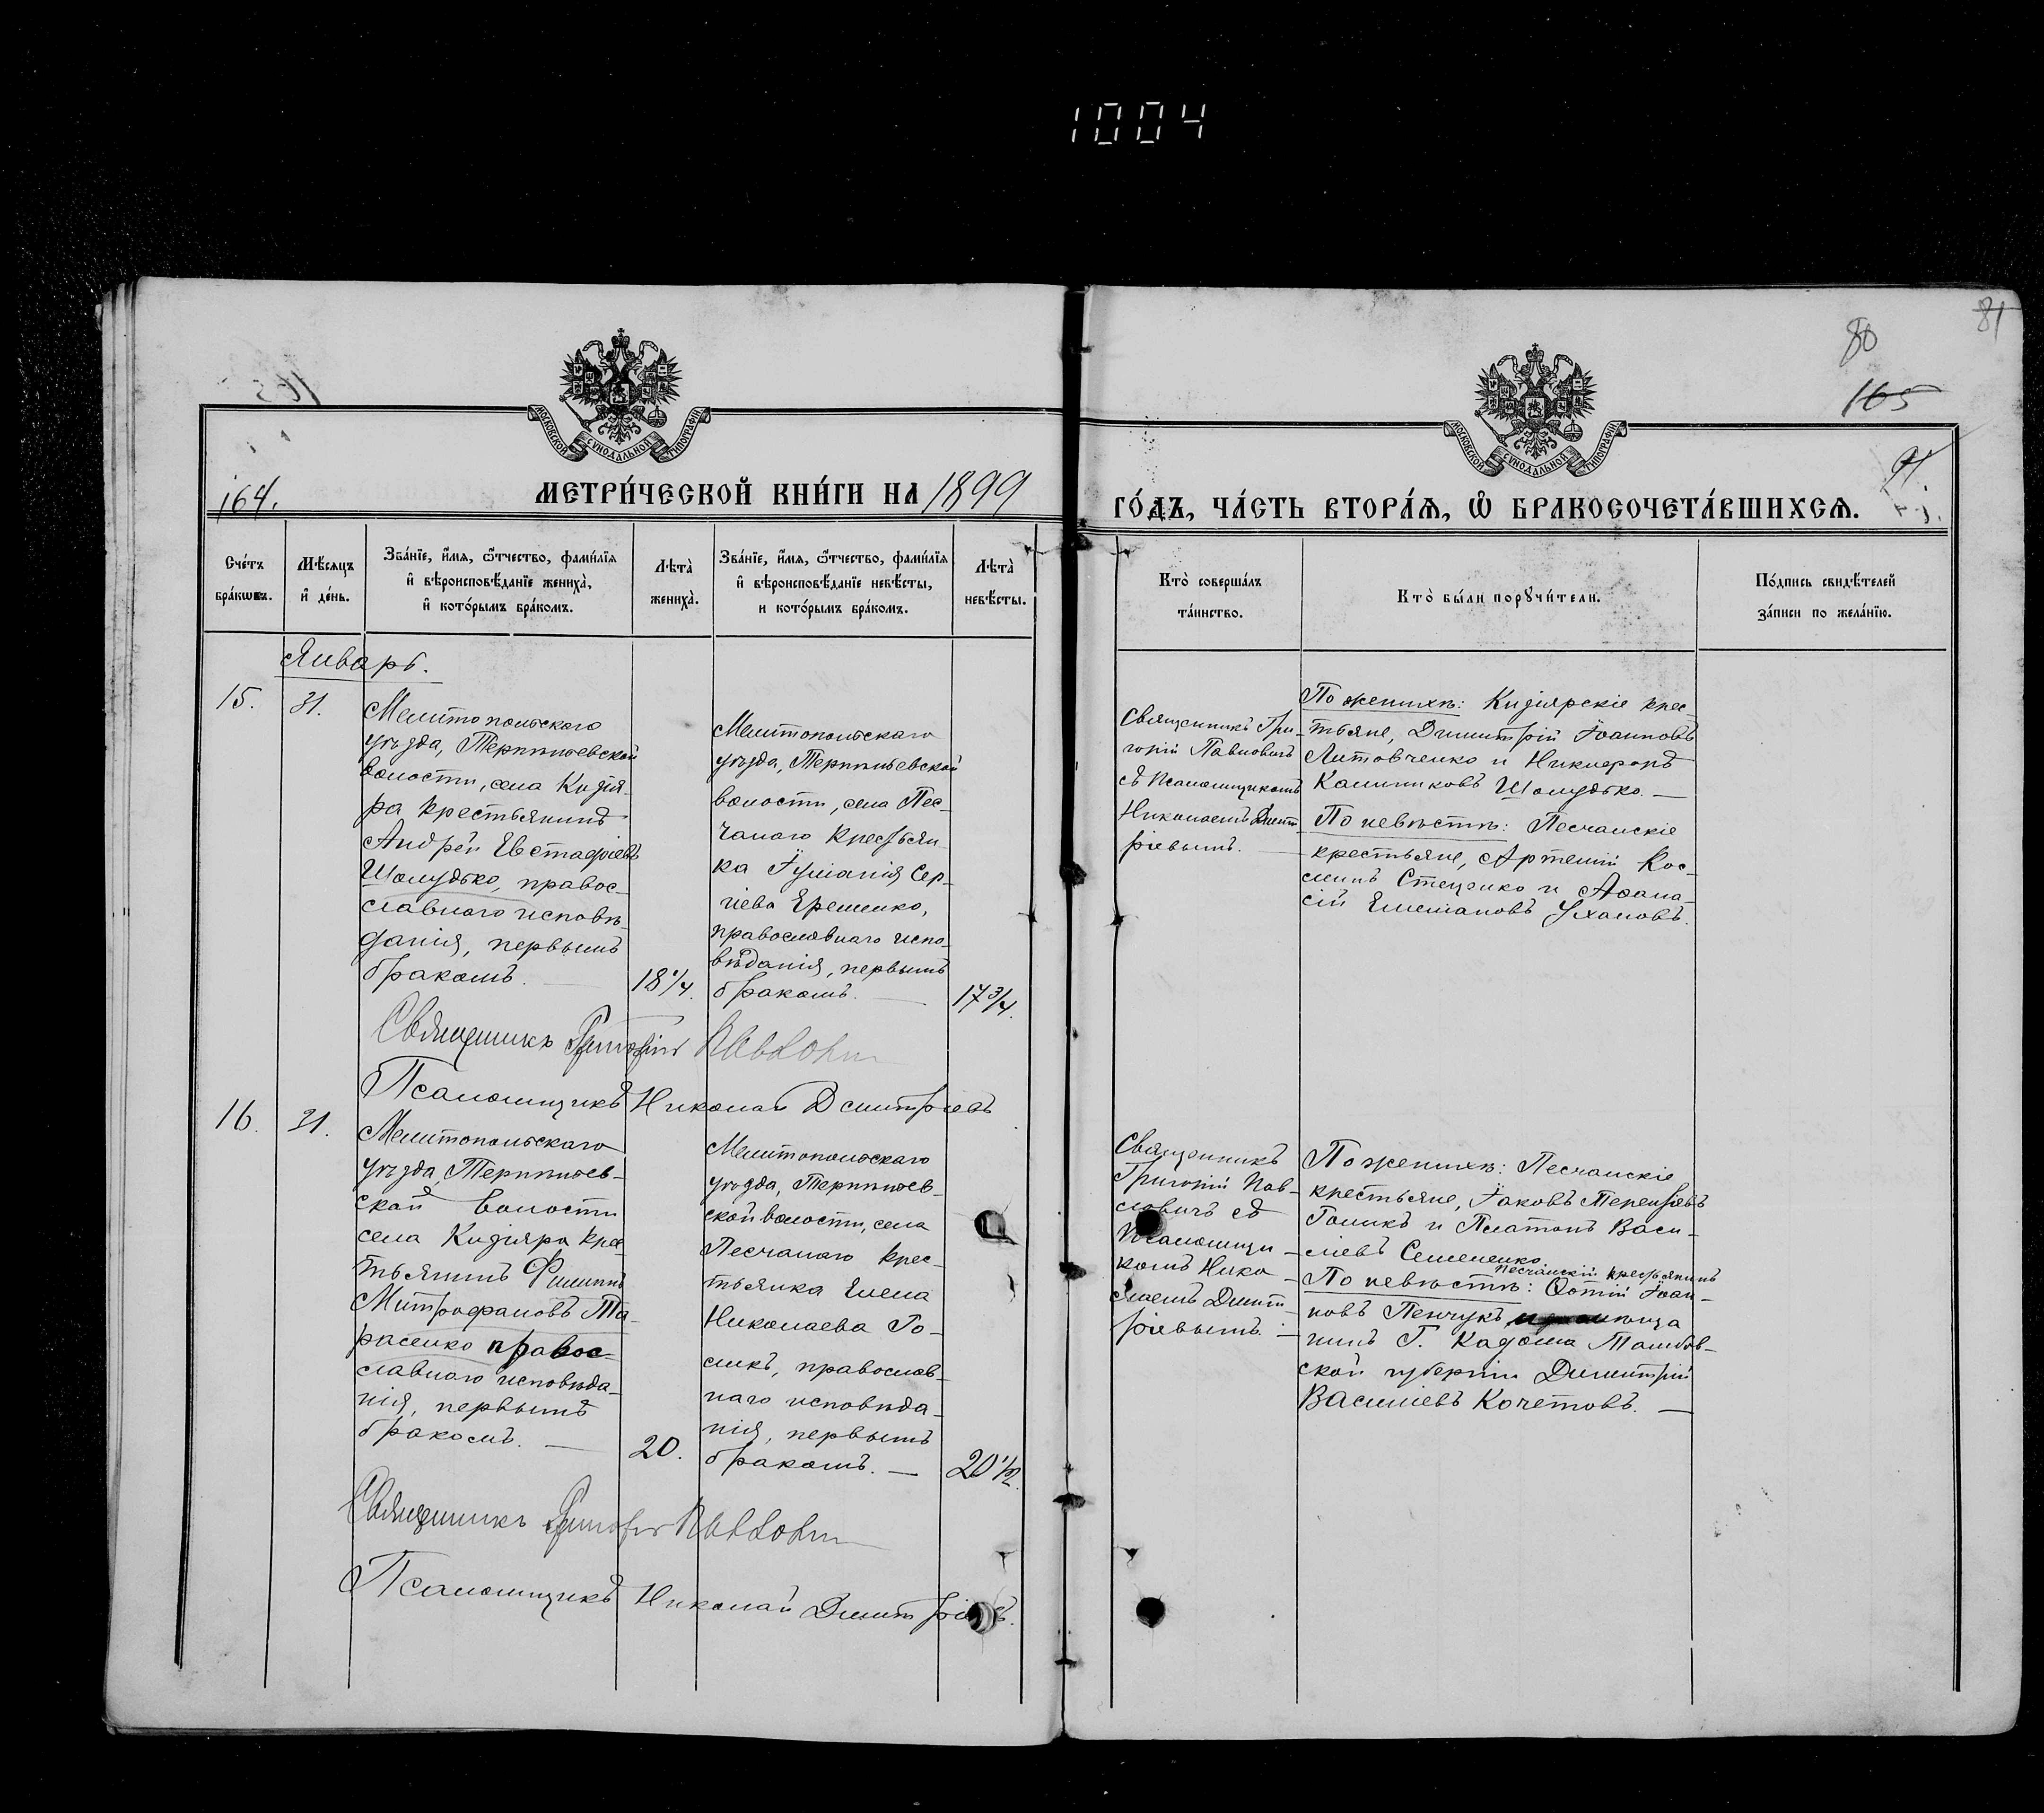 1004
81
80
165
МОСКОВСКОЙ СѴНОДАЛЬНОЙ ТИПОГРАФІИ
МОСКОВСКОЙ СѴНОДАЛЬНОЙ ТИПОГРАФІИ
164.
МЕТРИ́ЧЕСКОЙ КНИ́ГИ НА 1899
ГО́ДЪ, ЧА́СТЬ ВТОРА́Ѧ, Ѿ БРАКОСОЧЕТА́ВШИХСѦ.
Сче́тъ
бра́кωвъ.
Мѣ́сѧцъ
и҆ де́нь.
Зва́нїе, и҆́мѧ, ѻ҆́тчество, фами́лїѧ
и҆ вѣроисповѣ́данїе жениха̀,
и҆ кото́рымъ бра́комъ.
Лѣта̀
жениха̀.
Зва́нїе, и҆́мѧ, ѻ҆́тчество, фами́лїѧ
и҆ вѣроисповѣ́данїе невѣ́сты,
и кото́рымъ бра́комъ.
Лѣта̀
невѣ́сты.
Кто̀ соверша́лъ
та́инство.
Кто̀ бы́ли порꙋчи́тели.
По́дпись свидѣ́телей
за́писи по жела́нїю.
Январь.
15.
31.
Мелитопольскаго
уѣзда, Терпѣньевской
волости, села Кизія-
ра крестьянинъ
Андрей Евстафіевъ
Шолудько, правос-
славного исповѣ-
данія, первымъ
бракомъ. —
18 1/4.
Мелитопольскаго
уѣзда, Терпѣньевской
волости, села Пес-
чанаго крестьян-
ка Іуліанія Сер-
гіева Еременко,
православнаго испо-
вѣданія, первымъ
бракомъ. —
17 3/4.
Священникъ Гри-
горій Павловичъ
съ Псаломщикомъ
Николаемъ Дмит-
ріевымъ. —
По женихѣ: Кизіярскіе крес-
тьяне, Димитрій Іоанновъ
Литовченко и Никифоръ
Каминиковъ Шолудько. —
По невѣстѣ: Песчанскіе
крестьяне, Артемій Кос-
минъ Стеценко и Афана-
сій Емеліановъ Ухановъ.
Священникъ Григорій Павловичъ
Псаломщикъ Николай Дмитріевъ
16.
31.
Мелитопольскаго
уѣзда, Терпѣньев-
ской волости
села Кизіяра крес-
тьянинъ Филиппъ
Митрофановъ Та-
расенко правос-
славного исповѣда-
нія, первымъ
бракомъ. —
20.
Мелитопольскаго
уѣзда, Терпѣньев-
ской волости, села
Песчанаго крес-
тьянка Елена
Николаева Го-
ликъ, православ-
наго исповѣда-
нія, первымъ
бракомъ. —
20 1/2.
Священникъ
Григорій Пав-
ловичъ съ
Псаломщи-
комъ Нико-
лаемъ Дмит-
ріевымъ. —
По женихѣ: Песчанскіе
крестьяне, Іаковъ Терентіевъ
Голикъ и Платонъ Васи-
ліевъ Семененко
песчанскій крестьянинъ
По невѣстѣ: Фотій Іоан-
новъ Пенчукъ, мѣща
нинъ Г. Кадома Тамбов-
ской губерніи Димитрій
Василіевъ Кочетовъ. —
Священникъ Григорій Павловичъ
Псаломщикъ Николай Дмитріевъ.